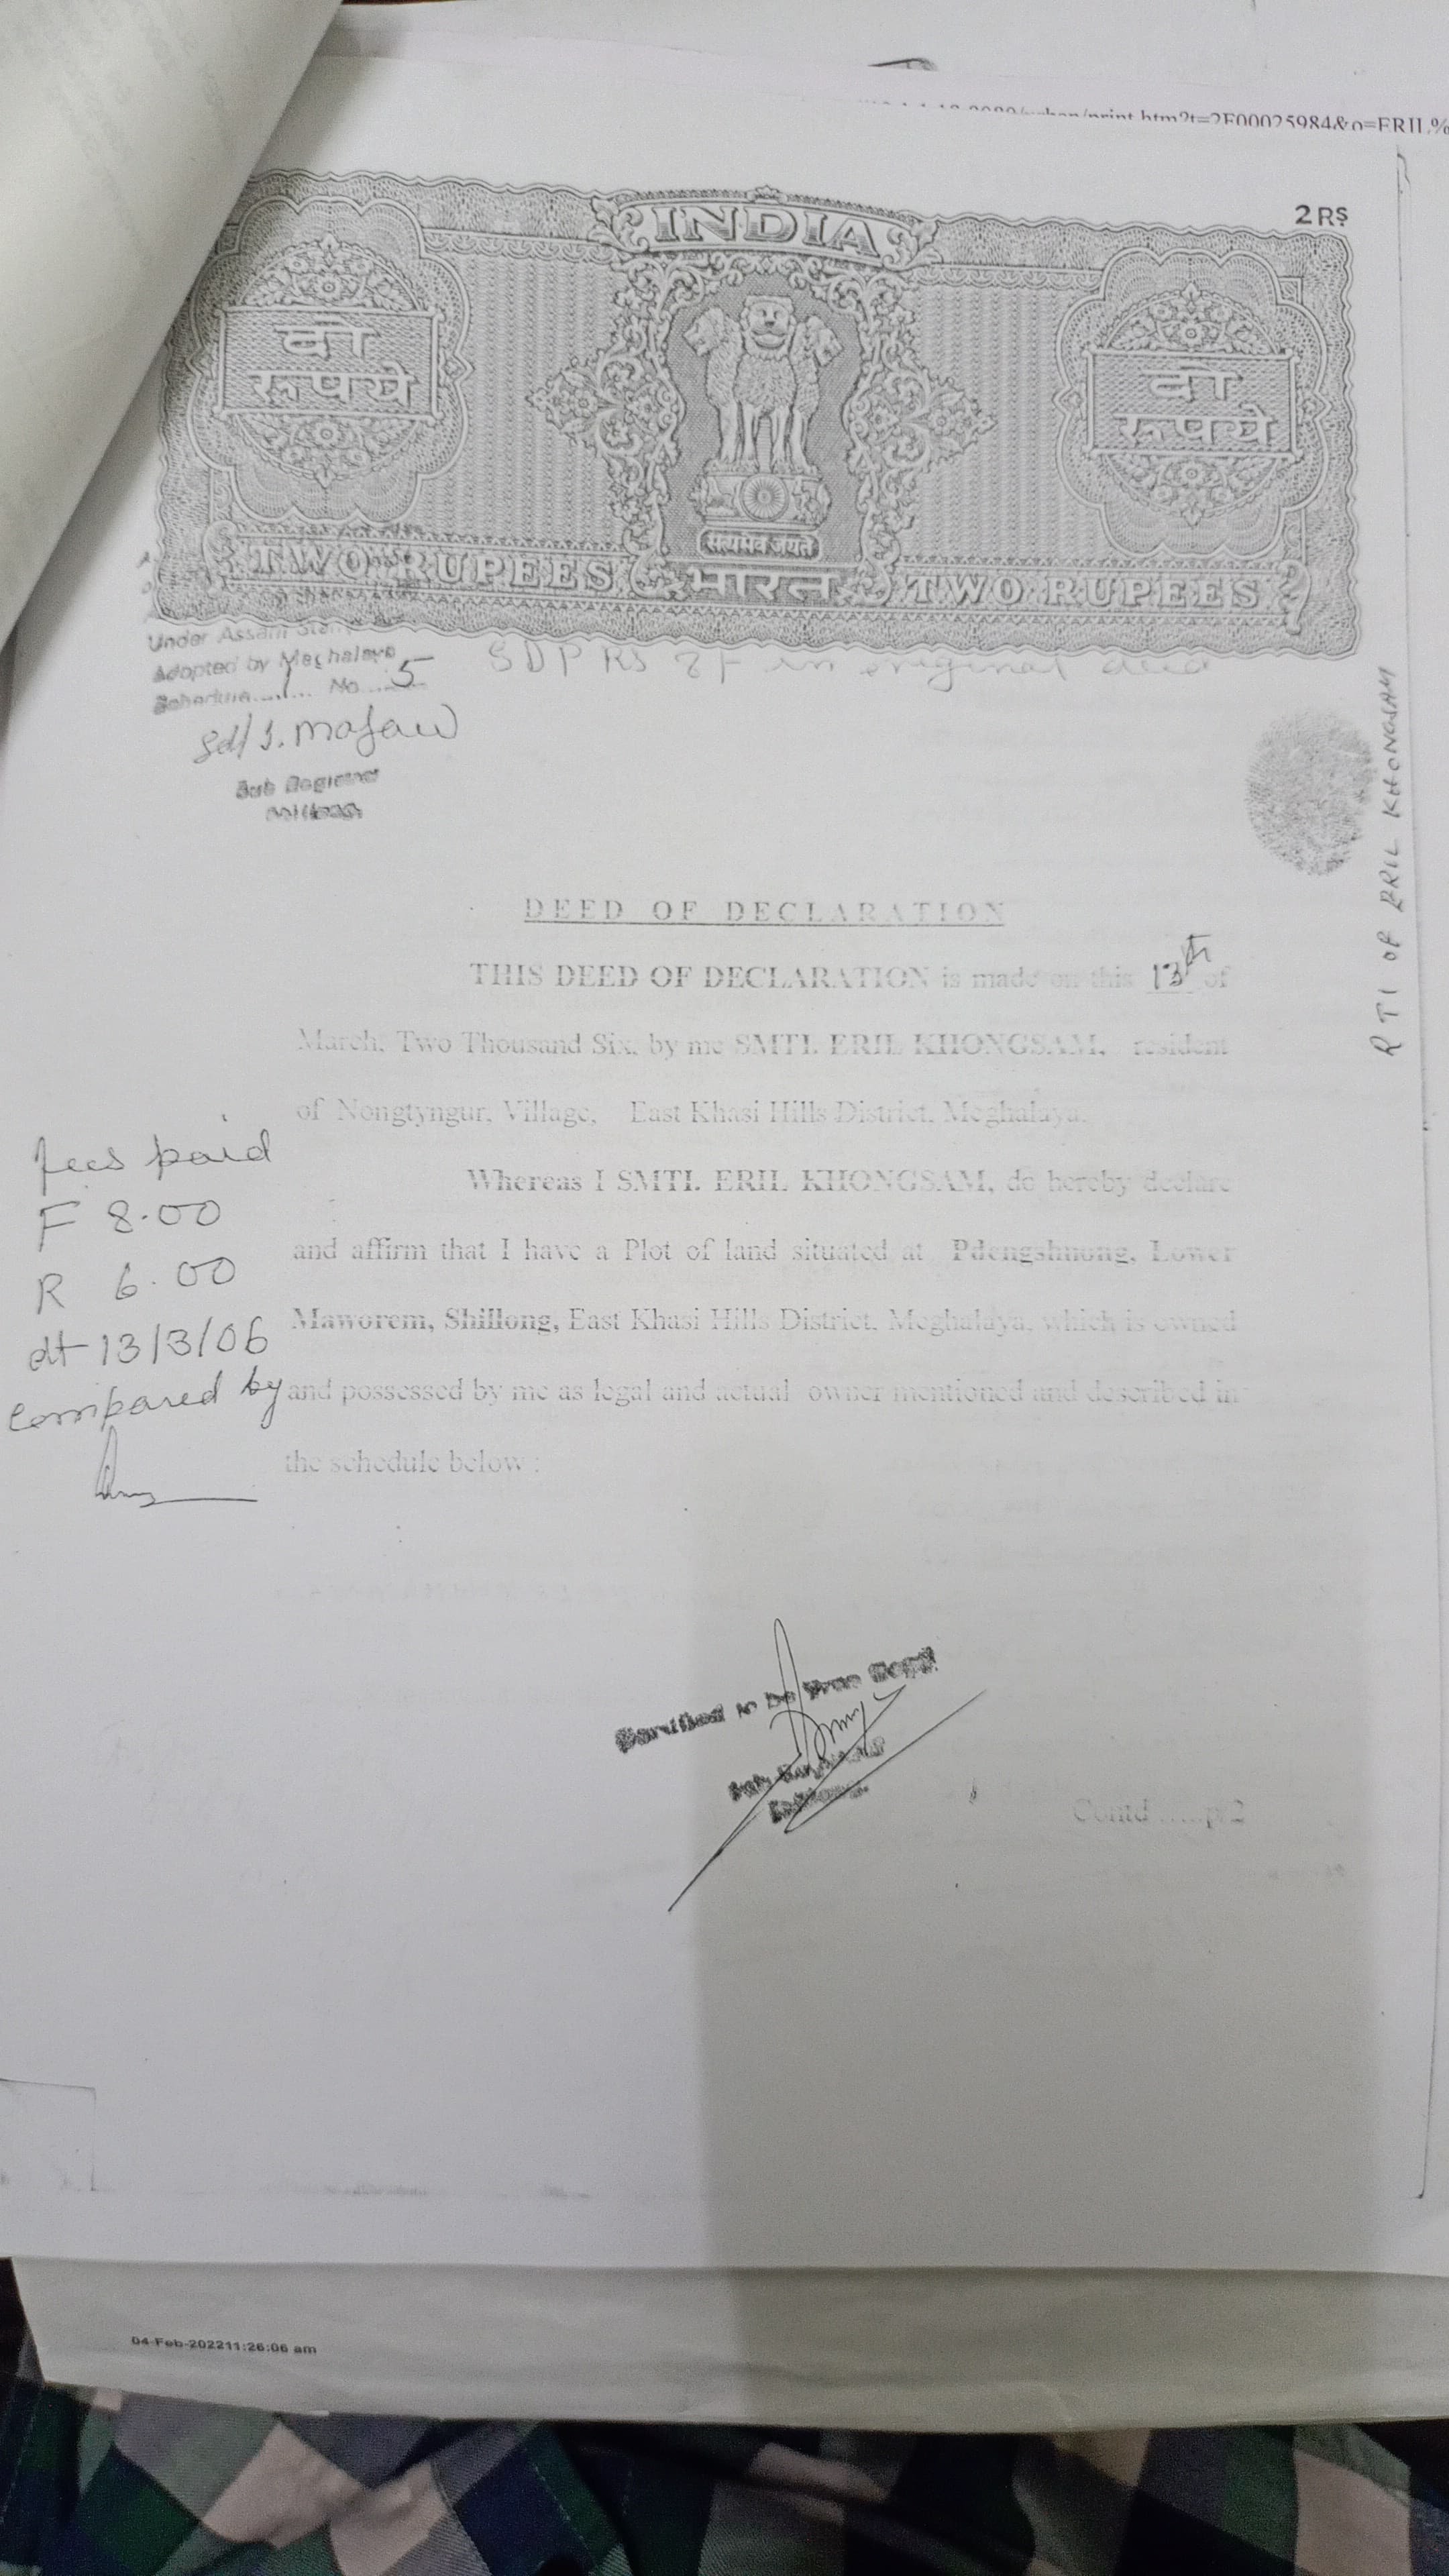 print.htm?t=2F00025984&o=ERIL%
2 RS
INDIA
दो
रूपये
दो
रूपये
सत्यमेव जयते
TWO RUPEES भारत TWO RUPEES
Under Assam
Adopted by Meghalaya
Schedule No 5
SDP RS 2/- in original deed
Sd/
Sub Registrar
Shillong
RTI OF ERIL KHONGSAM
DEED OF DECLARATION
THIS DEED OF DECLARATION is made on this 13th of
March, Two Thousand Six, by me SMTI. ERIL KHONGSAM, resident
of Nongtyngur, Village, East Khasi Hills District, Meghalaya.
Whereas I SMTI. ERIL KHONGSAM, do hereby declare
and affirm that I have a Plot of land situated at Pdengshnong, Lower
Maworem, Shillong, East Khasi Hills District, Meghalaya, which is owned
and possessed by me as legal and actual owner mentioned and described in
the schedule below :
fees paid
F 8.00
R 6.00
dt 13/3/06
compared by
Certified to be True Copy
Contd .....p/2
04-Feb-202211:26:06 am